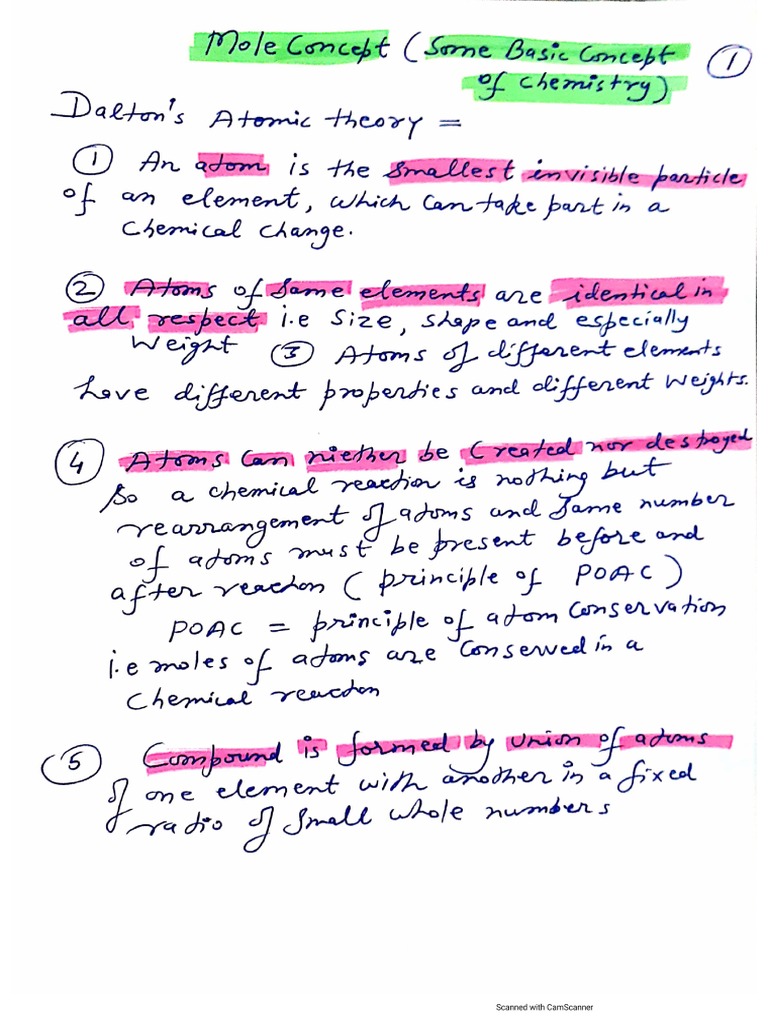 Mole Concept (Some Basic Concept
①
of chemistry)
Dalton's Atomic theory =
① An atom is the smallest invisible particle
of an element, which can take part in a
chemical change.
② Atoms of same elements are identical in
all respect i.e size, shape and especially
weight ③ Atoms of different elements
have different properties and different weights.
④ Atoms can niether be created nor destroyed
so a chemical reaction is nothing but
rearrangement of atoms and same number
of atoms must be present before and
after reaction (principle of POAC)
POAC = principle of atom conservation
i.e moles of atoms are conserved in a
chemical reaction
⑤ Compound is formed by union of atoms
of one element with another in a fixed
ratio of small whole numbers
Scanned with CamScanner